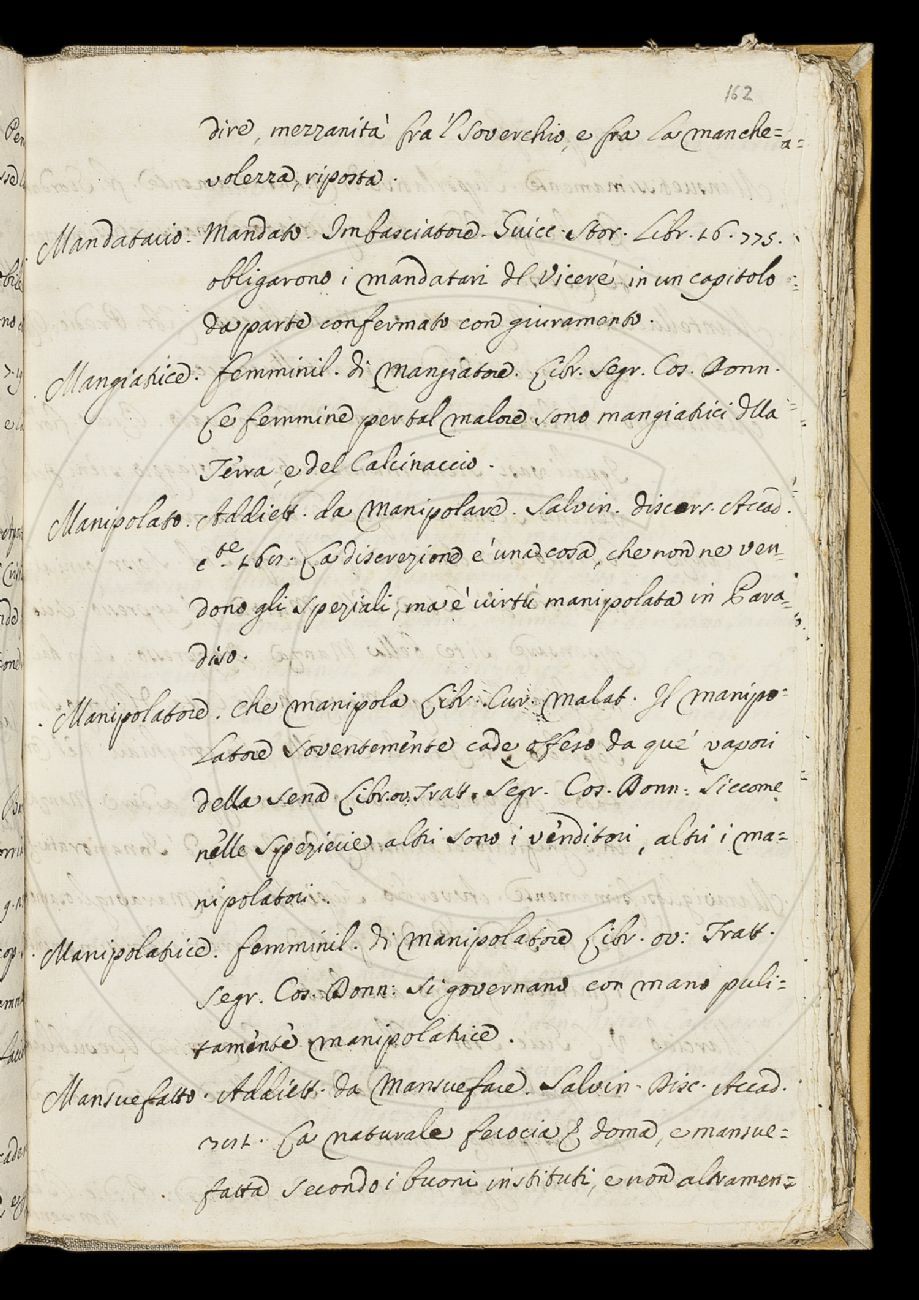 162
dire, mezzanità fra 'l soverchio, e fra la manche=
volezza, riposta.
Mandatario. Mandato. Imbasciatore. Guicc. Stor. Libr. 16. 775.
obligarono i mandatari del Viceré in un capitolo
da parte confermato con giuramento.
Mangiatrice. femminil. di mangiatore. Libr. Segr. Cos. Donn.
Le femmine per tal malore sono mangiatrici della
Terra, e del Calcinaccio.
Manipolato. Addiett. da Manipolare. Salvin. discors. Accad.
La discrezione é una cosa, che non ne ven-
dono gli speziali, ma é virtù manipolata in Para-
diso.
Manipolatore. Che manipola Libr. Cur. Malat. Il manipo-
latore soventemente cade offeso da que' vapori
della sena Libr. ov. Tratt. Segr. Cos. Donn: Siccome
nelle spezierie altri sono i venditori, altri i ma=
nipolatori.
Manipolatrice. femminil. di manipolatore Libr. ov: Tratt.
Segr. Cos. Donn: Si governano con mano puli=
tamente manipolatrice.
Mansuefatto. Addiett. da Mansuefare. Salvin. Disc. Accad.
La naturale ferocia é doma, e mansue=
fatta secondo i buoni instituti, e non altramen=